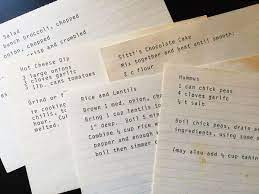 Salad
bunch broccoli, chopped
onion, chopped
onion, crisp and crumbled
Hot Cheese Dip
2 large onions
cloves garlic
1 lb. cans tomatoes
Grind or
Citti's Chocolate Cake
mix together and beat until smooth:
2 c flour
Rice and Lentils
Brown 1 med. onion, chop
1" deep. Boil 5 min
Combine ½ cup rice
pepper and enough
boil then simmer
Hummus
1 can chick peas
4 cloves garlic
½ t salt
Boil chick peas, drain
ingredients, using some
(may also add ½ cup tahini